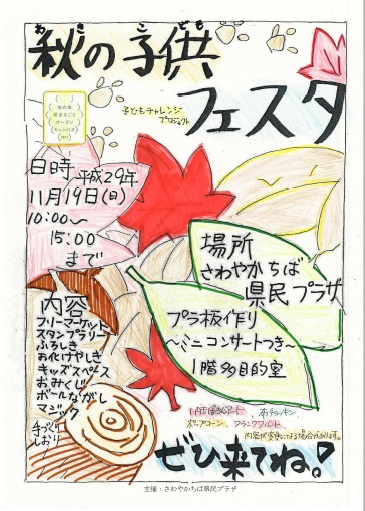 あき こども
秋の子供
フェスタ
子どもチャレンジ
プロジェクト
日時
平成29年
11月19日(日)
10:00～
15:00
まで
場所
さわやかちば
県民プラザ
プラ板作り
～ミニコンサートつき～
1階多目的室
内容
フリーマーケット
スタンプラリー
ふろしき
お化けやしき
キッズスペース
おみくじ
ボールながし
マジック
手づくり
しおり
ポップコーン、フランクフルト
内容が変更になる場合があります。
ぜひ来てね!
主催：さわやかちば県民プラザ